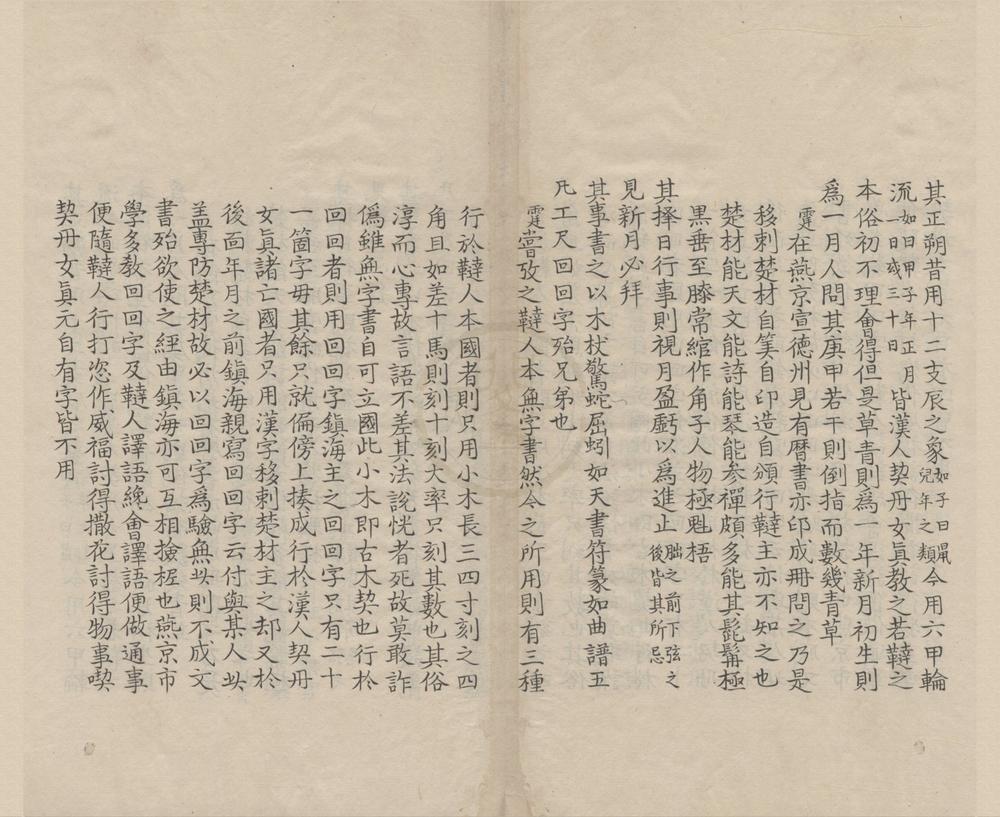 其正朔昔用十二支辰之象如子曰鼠兒年之類今用六甲輪
流如曰甲子年正月一日或三十日皆漢人契丹女真教之若韃之
本俗初不理會得但是草青則為一年新月初生則
為一月人問其庚甲若干則倒指而數幾青草
霆在燕京宣德州見有曆書亦印成冊問之乃是
移剌楚材自筭自印造自頒行韃主亦不知之也
楚材能天文能詩能琴能参禪頗多能其髭髯極
黑垂至膝常綰作角子人物極魁梧
其擇日行事則視月盈虧以為進止朏之前下弦之後皆其所忌
見新月必拜
其事書之以木杖驚蛇屈蚓如天書符篆如曲譜五
凡工尺回回字殆兄弟也
霆嘗攷之韃人本無字書然今之所用則有三種
行於韃人本國者則只用小木長三四寸刻之四
角且如差十馬則刻十刻大率只刻其數也其俗
淳而心專故言語不差其法說恍者死故莫敢詐
偽雖無字書自可立國此小木即古木契也行於
回回者則用回回字鎮海主之回回字只有二十
一箇字母其餘只就偏傍上揍成行於漢人契丹
女真諸亡國者只用漢字移剌楚材主之却又於
後面年月之前鎮海親寫回回字云付與某人此
盖專防楚材故必以回回字為驗無此則不成文
書殆欲使之經由鎮海亦可互相撿柅也燕京市
學多教回回字及韃人譯語纔會譯語便做通事
便隨韃人行打恣作威福討得撒花討得物事喫
契丹女真元自有字皆不用